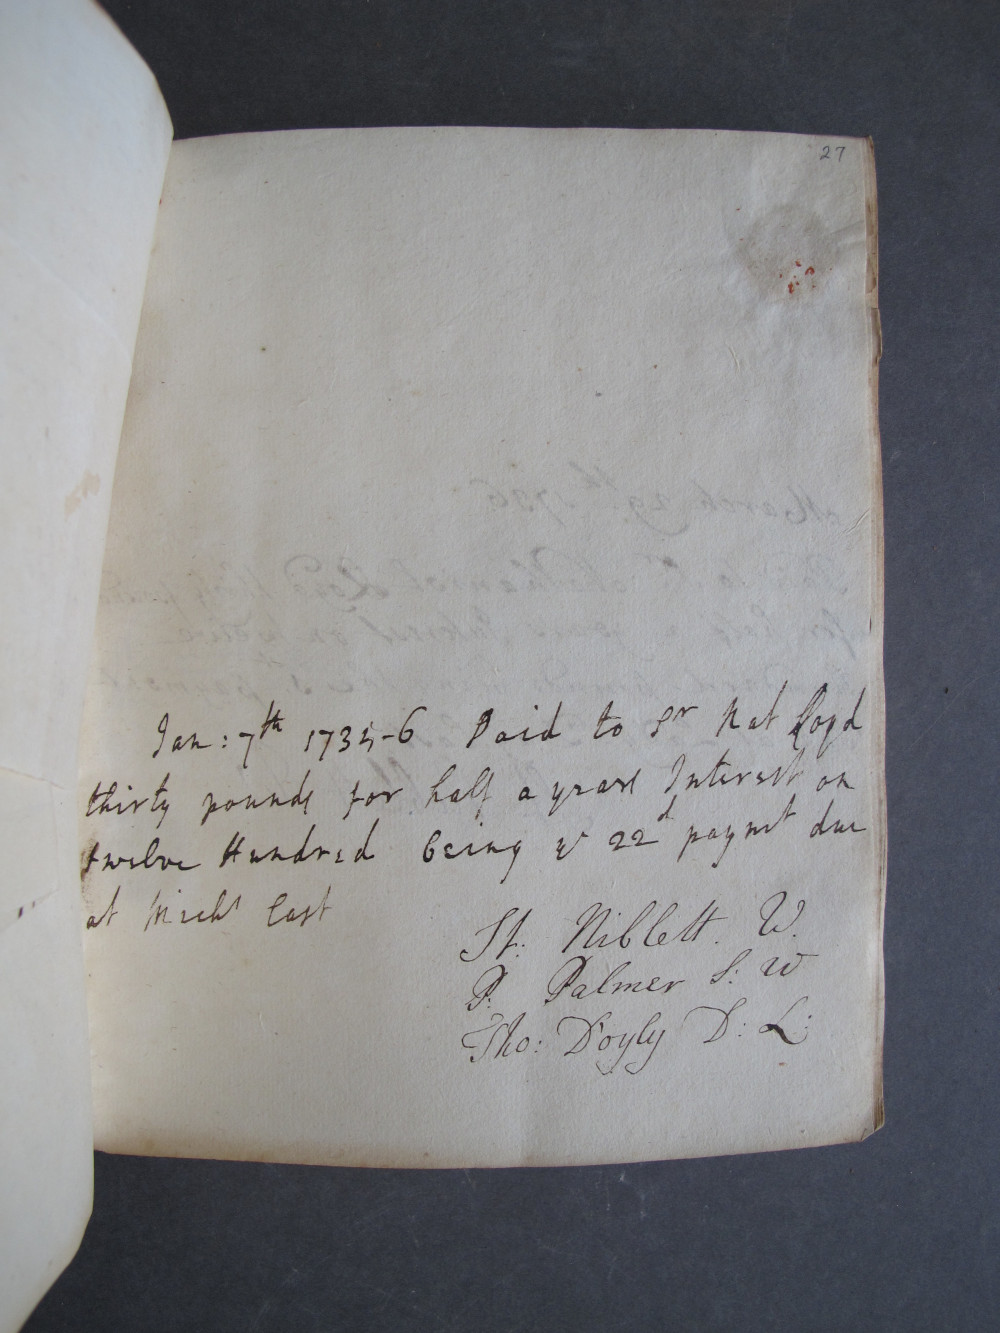 27
Jan: 7th 1735-6 Paid to Sr Nat Lloyd
thirty pounds for half a years Interest on
twelve Hundred being ye 22d paymt due
at Michs last
St: Niblett. W.
P: Palmer S: W
Tho: D'oyly D: L: